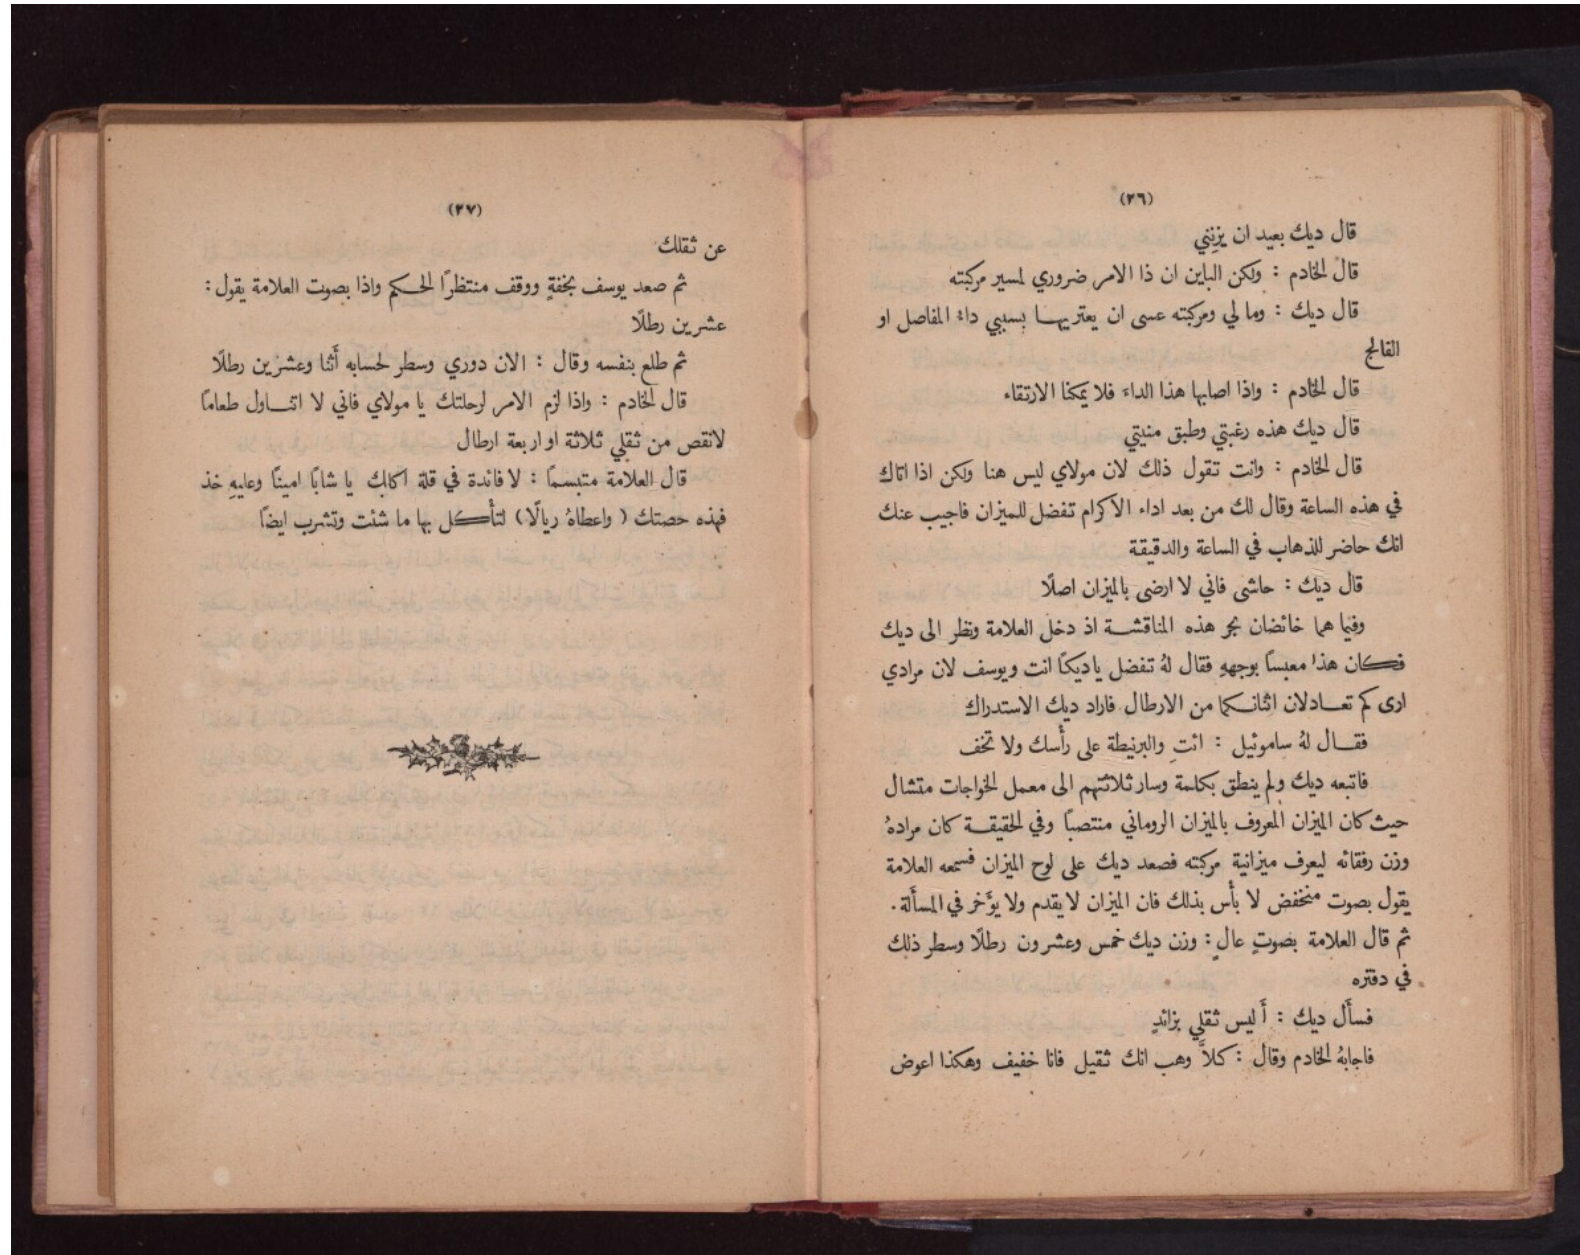 (٢٦)
قال ديك بعيد ان يزِنني
قال الخادم : ولكن الباين ان ذا الامر ضروري لمسير مركبته
قال ديك : وما لي ومركبته عسى ان يعتريها بسببي داءُ المفاصل او
الفالج
قال الخادم : واذا اصابها هذا الداءَ فلا يمكنا الارتقاء
قال ديك هذه رغبتي وطبق منيتي
قال الخادم : وانت تقول ذلك لان مولاي ليس هنا ولكن اذا اتاك
في هذه الساعة وقال لك من بعد اداء الاكرام تفضل للميزان فاجيب عنك
انك حاضر للذهاب في الساعة والدقيقة
قال ديك : حاشى فاني لا ارضى بالميزان اصلًا
وفيما هما خائضان بحر هذه المناقشة اذ دخل العلامة ونظر الى ديك
فكان هذا معبسًا بوجههِ فقال لهُ تفضل يا ديكنا انت ويوسف لان مرادي
ارى كم تعادلان اثنانكما من الارطال فاراد ديك الاستدراك
فقال لهُ ساموئيل : ائتِ والبرنيطة على رأسك ولا تخف
فاتبعه ديك ولم ينطق بكلمة وسار ثلاثتهم الى معمل الخواجات متشال
حيث كان الميزان المعروف بالميزان الروماني منتصبًا وفي الحقيقة كان مرادهُ
وزن رفقائه ليعرف ميزانية مركبته فصعد ديك على لوح الميزان فسمعه العلامة
يقول بصوت منخفض لا بأس بذلك فان الميزان لا يقدم ولا يؤَخر في المسأَلة .
ثم قال العلامة بصوتٍ عالٍ : وزن ديك خمس وعشرون رطلًا وسطر ذلك
في دفتره
فسأَل ديك : أَليس ثقلي بزائدٍ
فاجابهُ الخادم وقال : كلاَّ وهب انك ثقيل فانا خفيف وهكذا اعوض
(٢٧)
عن ثقلك
ثم صعد يوسف بخفةٍ ووقف منتظرًا الحكم واذا بصوت العلامة يقول :
عشرين رطلًا
ثم طلع بنفسه وقال : الان دوري وسطر لحسابه أَثنا وعشرين رطلًا
قال الخادم : واذا لزم الامر لرحلتك يا مولاي فاني لا اتناول طعامًا
لانقص من ثقلي ثلاثة او اربعة ارطال
قال العلامة متبسمًا : لا فائدة في قلة اكلك يا شابًا امينًا وعليهِ خذ
فهذه حصتك ( واعطاهُ ريالًا ) لتأكل بها ما شئت وتشرب ايضًا